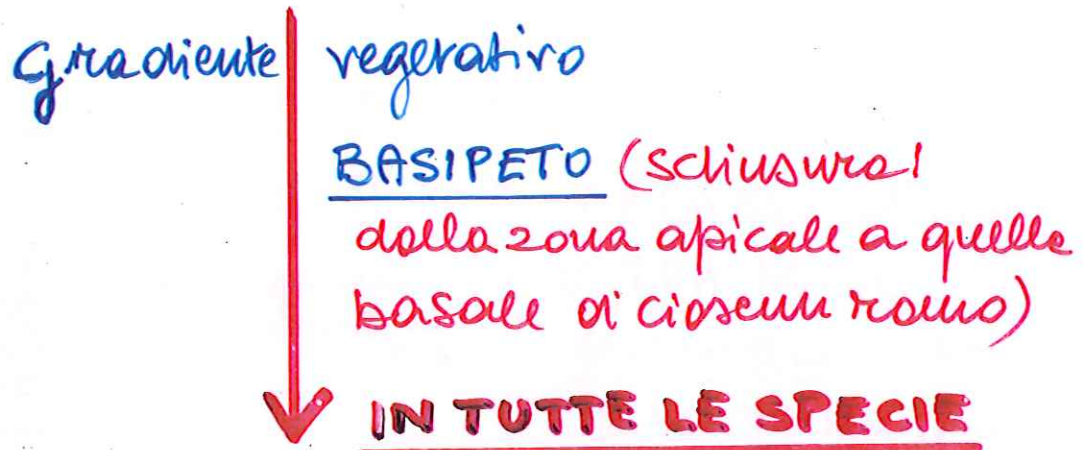 Gradiente vegetativo
BASIPETO (schiusura
dalla zona apicale a quella
basale di ciascun ramo)
IN TUTTE LE SPECIE